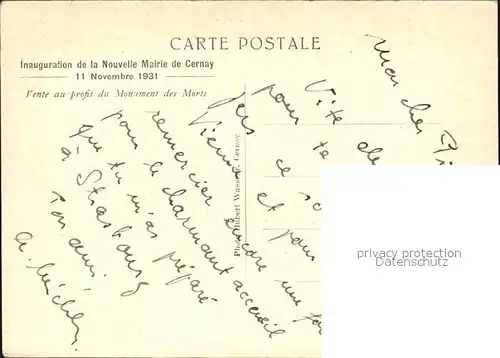 CARTE POSTALE
Inauguration de la Nouvelle Mairie de Cernay
11 Novembre 1931
Vente au profit du Monument des Morts
Photo Hubert Wasser, Cernay.
Mon cher
Vite de
pour te
ce
et pour
Vienne
remercier encore une
pour le charmant accueil
que tu m'as préparé
à Strasbourg
Ton ami
privacy protection
Datenschutz